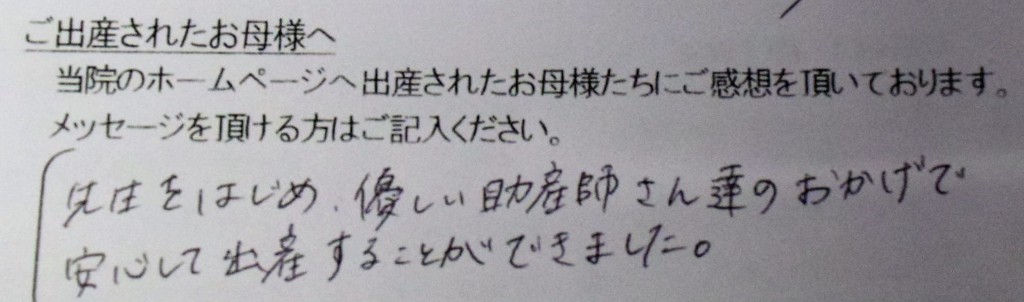 ご出産されたお母様へ
当院のホームページへ出産されたお母様たちにご感想を頂いております。
メッセージを頂ける方はご記入ください。
先生をはじめ、優しい助産師さん達のおかげで
安心して出産することができました。